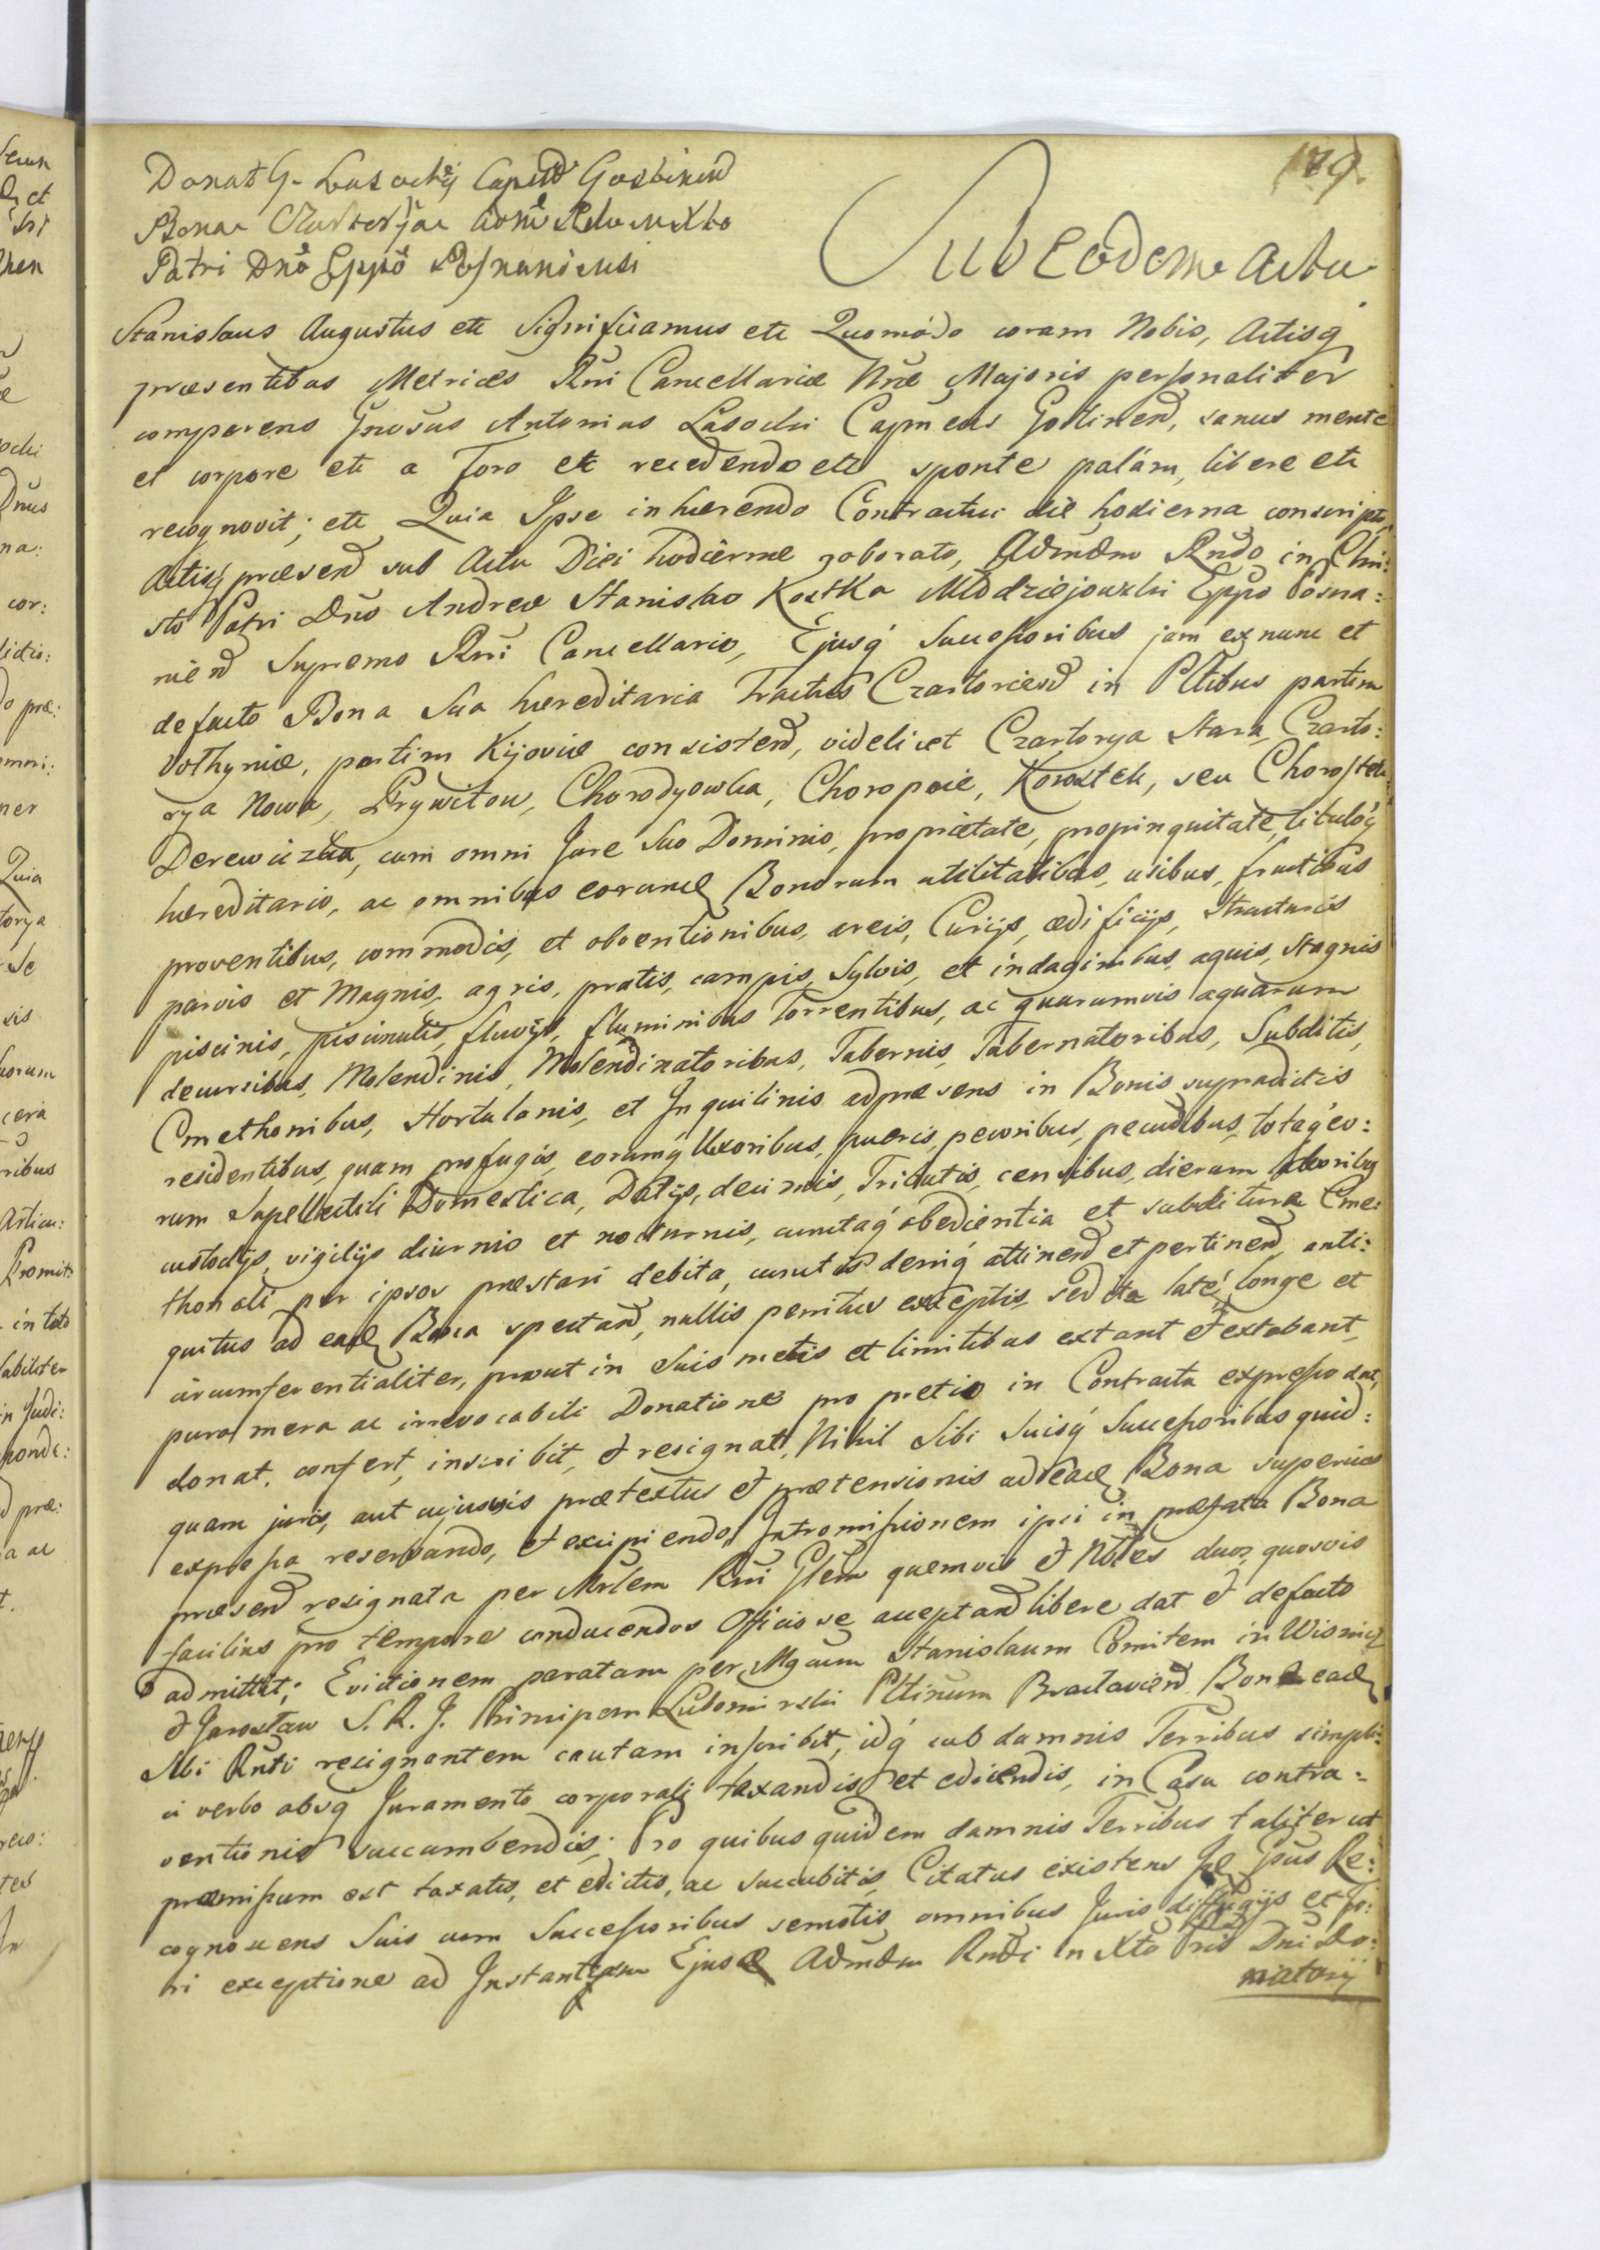 179.
Donat G. Lasockj Capnd Gostinend
Bonae Czartorjae Admd Rdo in Xto
Patri Dno Eppo Posnaniensi
Sub eodem Actu
Stanislaus Augustus etc Significamus etc Quomodo coram Nobis, Actisq
præsentibus Metrices Rni Cancellariæ Nræ Majoris personaliter
comparens Gnosus Antonius Lasocki Capneus Gostinend, sanus mente
et corpore etc a Foro etc recedendo etc sponte palám, libere etc
recognovit; etc Quia Ipse inhærendo Contractui die hodierna conscripto,
Actisq præsend sub Actu Diei hodiernæ roborato, Admdm Rndo in Chri:
sto Patri Dno Andreæ Stanislao Kostka Młodziejowski Eppo Posna:
niend Supremo Rni Cancellario, Ejusq́ Successoribus jam ex nunc et
de facto Bona Sua hæreditaria Tractus Czartoriend in Pltibus partim
Volhyniæ, partim Kijoviæ consistend, videlicet Czartorya Stara, Czarto:
rya Nowa, Prywitow, Chorodyowka, Choropoie, Korostek, seu Chorostek
Derewiczka, cum omni Jure Suo Dominio, proprietate, propinquitate, tituloq́
hæreditario, ac omnibus eorumd Bonorum utilitatibus, usibus, fructibus
proventibus, commodis, et obventionibus, areis, Curijs, ædificijs, structuris
parvis et Magnis, agris, pratis, campis, Sylvis, et indaginibus, aquis, stagnis
piscinis, piscinulis, fluvijs, fluminibus Torrentibus, ac quarumvis aquarum
decursibus, Molendinis, Molendinatoribus, Tabernis, Tabernatoribus, Subditis,
Cmethonibus, Hortulanis, et Inquilinis adpræsens in Bonis supradictis
residentibus, quam profugis, eorumq́ Uxoribus, pueris, pecoribus, pecudibus, totaq́ eo:
rum Supellectili Domestica, Datijs, decimis, Tributis, censibus, dierum laboribus
custodijs, vigilijs diurnis et nocturnis, cunctaq́ obedientia et subditura Cme:
thonali per ipsos præstari debita, cunctis deniq́ attinend et pertinend, anti:
quitus ad ead Bona spectand, nullis penitus exceptis, sed ita laté, longe et
circumferentialiter, prout in Suis metis et limitibus extant et extabant,
pura mera ac irrevocabili Donatione pro pretio in Contractu expresso dat,
donat, confert, inscribit, et resignat, Nihil Sibi Suisq́ Successoribus quid:
quam juris, aut cujusvis prætextus et prætensionis ad ead Bona superius
expressa reservando, et excipiendo, Intromissionem ipsi in præfata Bona
præsend resignata per Mrlem Rni Glem quemvis et Nbles duos quosvis
facilius pro tempore conducendos Officiose acceptand libere dat et de facto
admittit; Evictionem paratam per Mgcum Stanislaum Comitem in Wisnicz
et Jarosław S. R. J. Principem Lubomirski Pltinum Braclaviend Bona ead
Sbi Rnti resignantem cautam inscribit, idq́ sub damnis Terribus simpli:
ci verbo absq Juramento corporali taxandis et edicendis, in Casu contra:
ventionis succumbendis; Pro quibus quidem damnis Terribus taliter ut
præmissum est taxatis, et edictis, ac succubitis, Citatus existens Idem Ipsus Re:
cognoscens Suis cum Successoribus semotis omnibus Juris diffugijs et Fo:
ri exceptione ad Instantiam Ejusd Admdm Rndi in Xto Pris Dni Do:
natorij